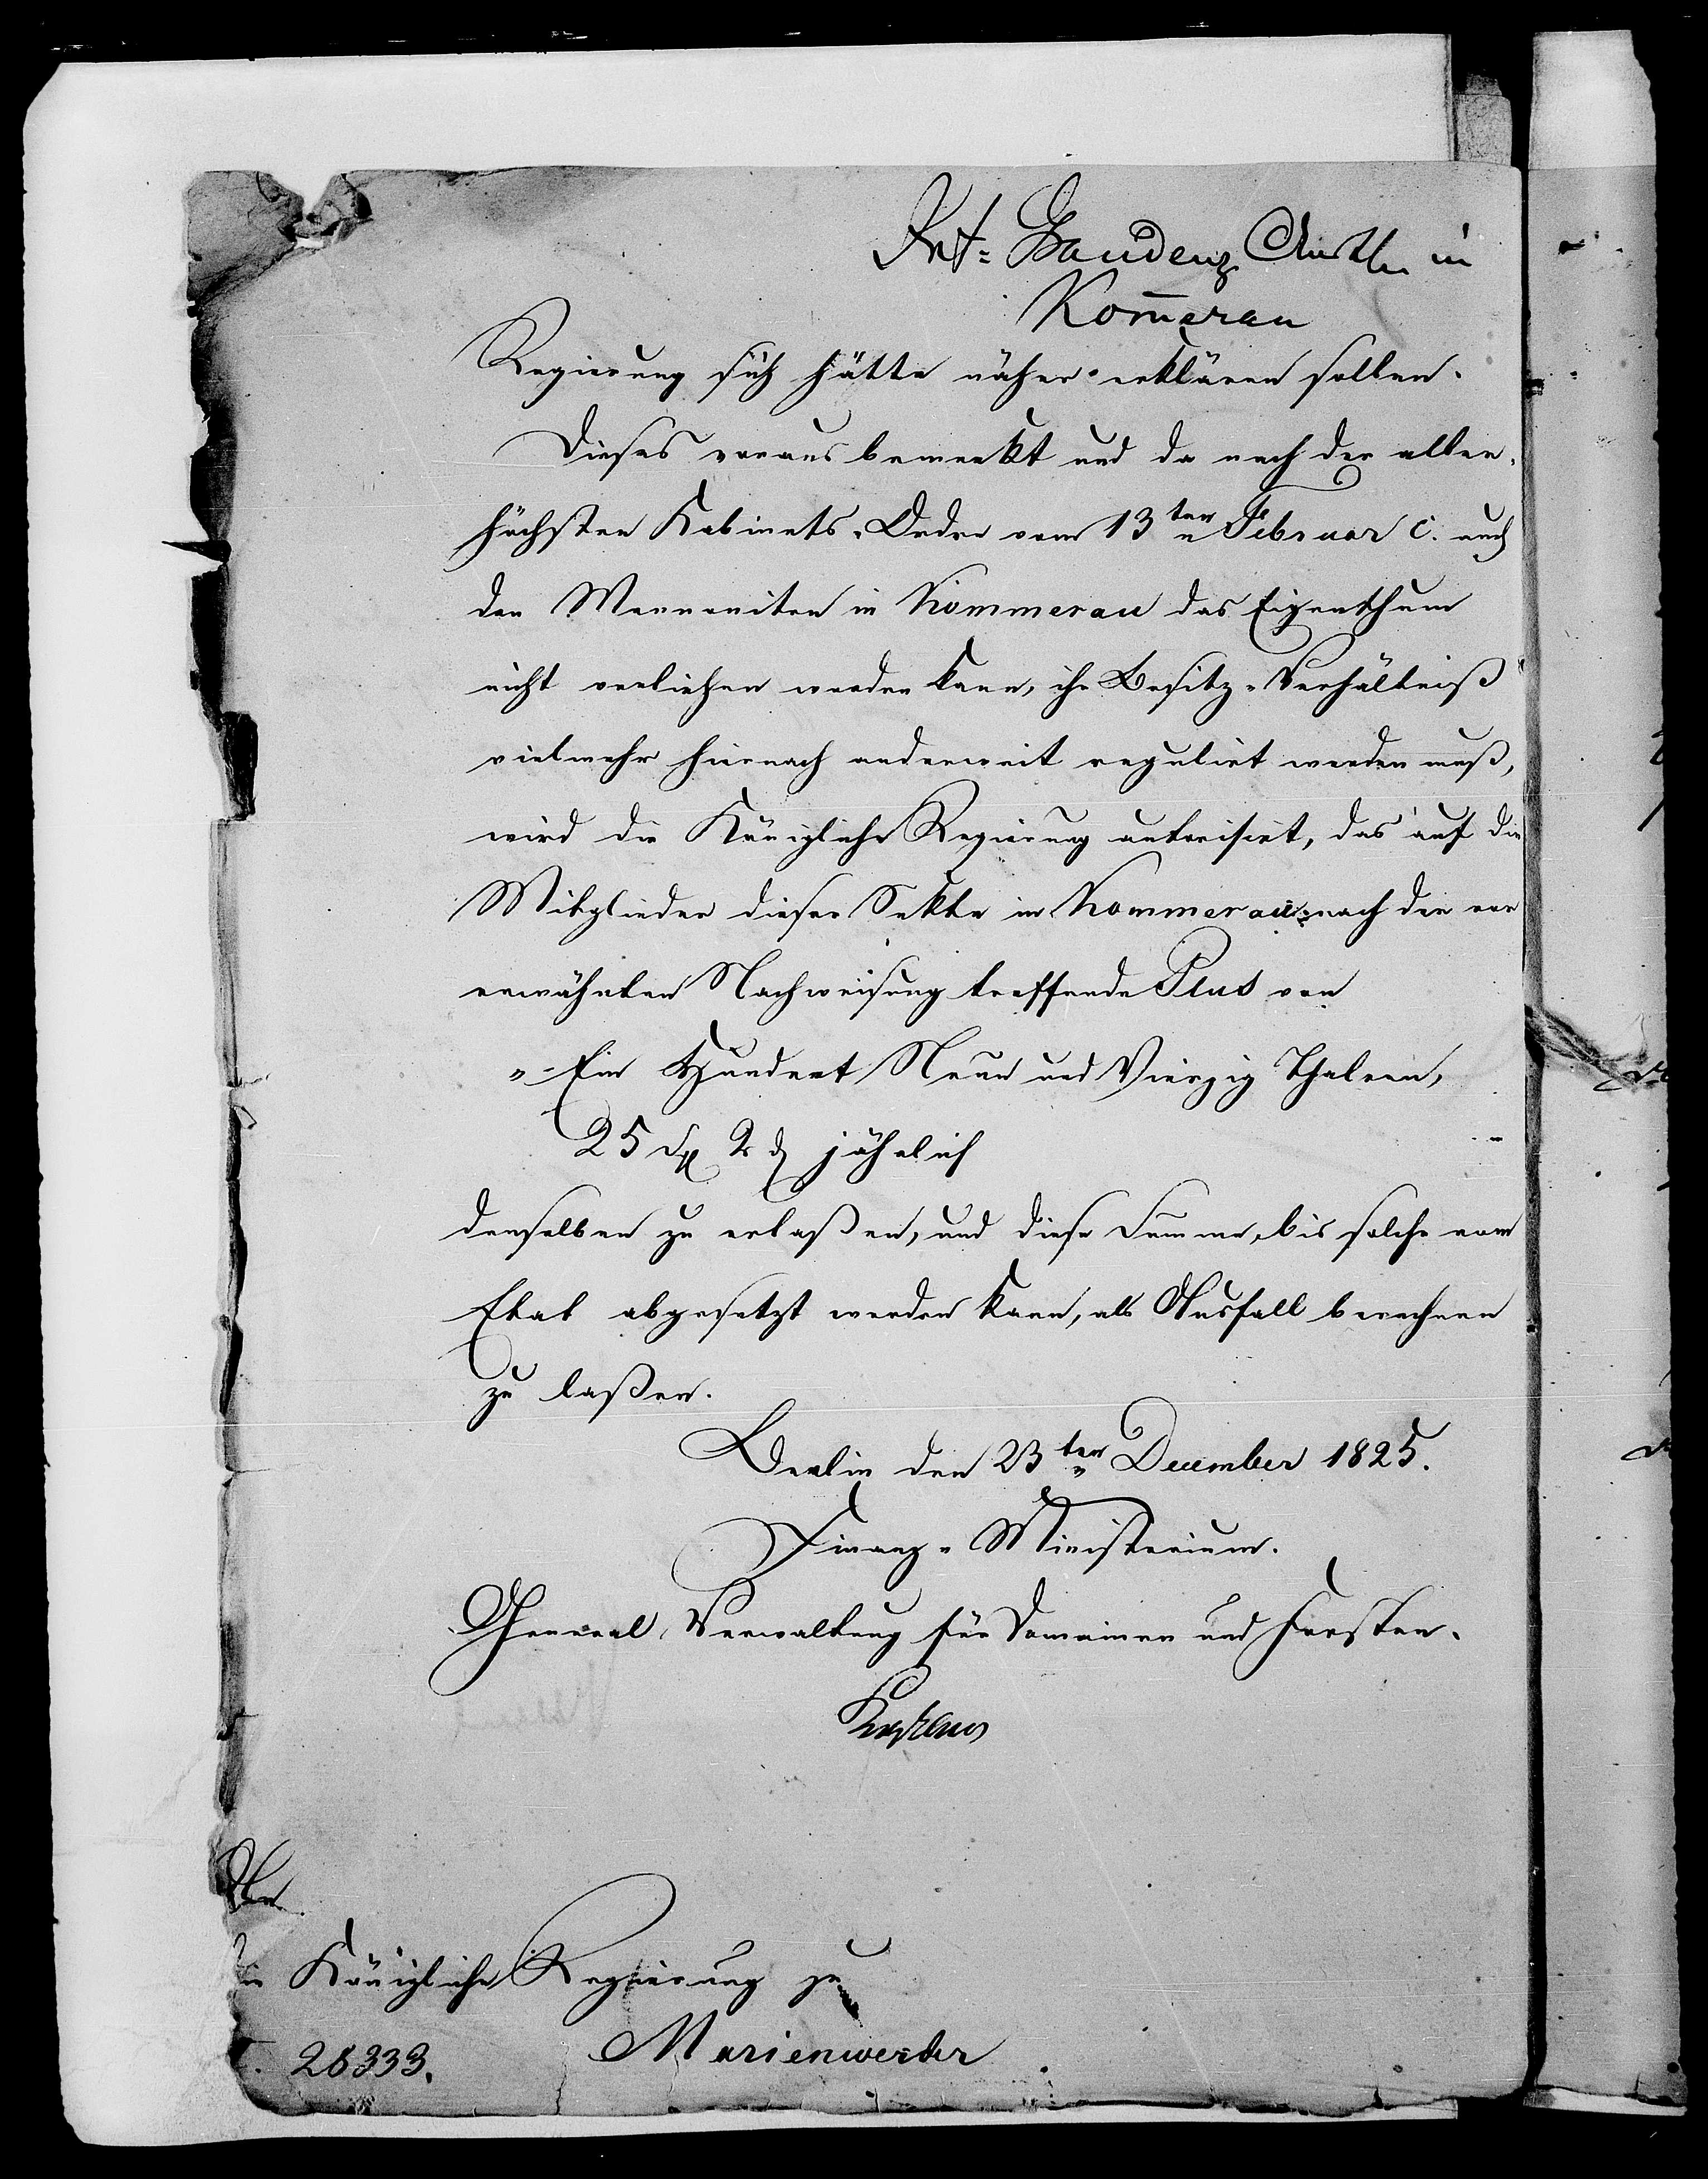 Kommerau
Regierung sich hätte näher erklären sollen.
Dieses voraus bemerkt und da nach der aller-
höchsten Kabinets-Ordre vom 13ten Februar c. auch
den Mennoniten in Kommerau das Eigenthum
nicht verliehen werden kann, ihr Besitz-Verhältniß
vielmehr hiernach anderweit regulirt werden muß,
wird die Königliche Regierung autorisirt, das auf die
Mitglieder dieser Sekte in Kommerau nach der vor
erwähnten Nachweisung treffende Plus von
"Ein Hundert Neun und Vierzig Thalern,
25 Sg 2 d jährlich
denselben zu erlaßen, und diese Summe, bis solche vom
Etat abgesetzt werden kann, als Ausfall berechnen
zu laßen.
Berlin den 23ten December 1825.
Finanz-Ministerium.
General-Verwaltung für Domainen und Forsten.
An
die Königliche Regierung zu
Marienwerder
28333.